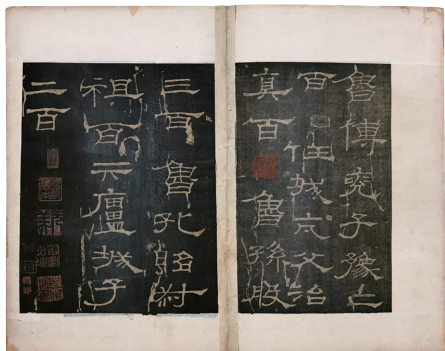 魯傅兗子豫二
百任城亢父治
真百魯孫殷
三百魯孔昭叔
祖百亓廬城子
二百